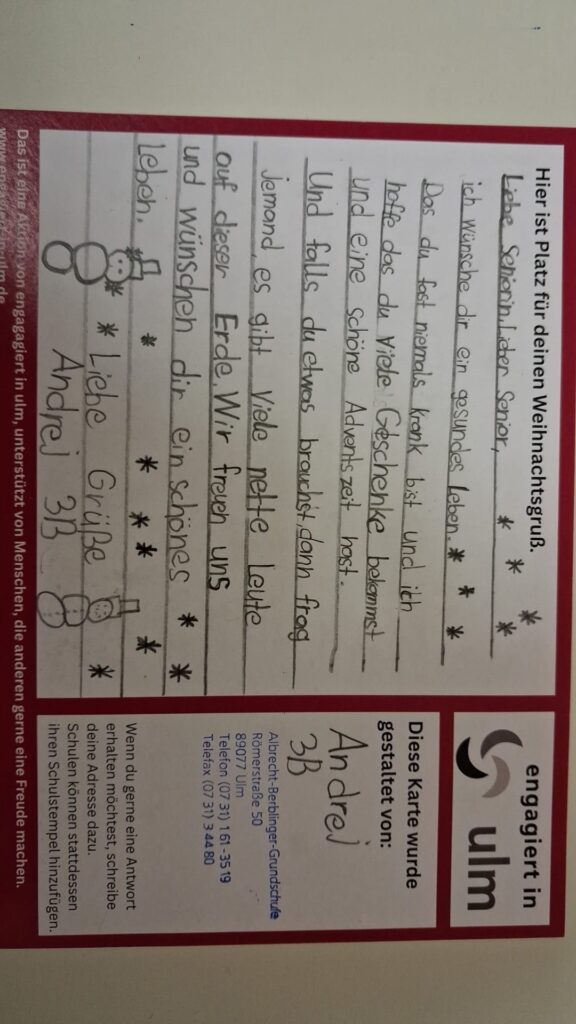 Hier ist Platz für deinen Weihnachtsgruß.
Liebe Seniorin, Lieber Senior,
ich wünsche dir ein gesundes Leben.
Das du fast niemals krank bist und ich
hoffe das du viele Geschenke bekommst
und eine schöne Adventszeit hast.
Und falls du etwas brauchst, dann frag
jemand, es gibt viele nette Leute
auf dieser Erde. Wir freuen uns
und wünschen dir ein schönes
Leben.
Liebe Grüße
Andrej 3B
engagiert in
ulm
Diese Karte wurde
gestaltet von:
Andrej
3B
Albrecht-Berblinger-Grundschule
Römerstraße 50
89077 Ulm
Telefon (07 31) 1 61-35 19
Telefax (07 31) 3 44 80
Wenn du gerne eine Antwort
erhalten möchtest, schreibe
deine Adresse dazu.
Schulen können stattdessen
ihren Schulstempel hinzufügen.
Das ist eine Aktion von engagiert in ulm, unterstützt von Menschen, die anderen gerne eine Freude machen.
www.engagiert-in-ulm.de